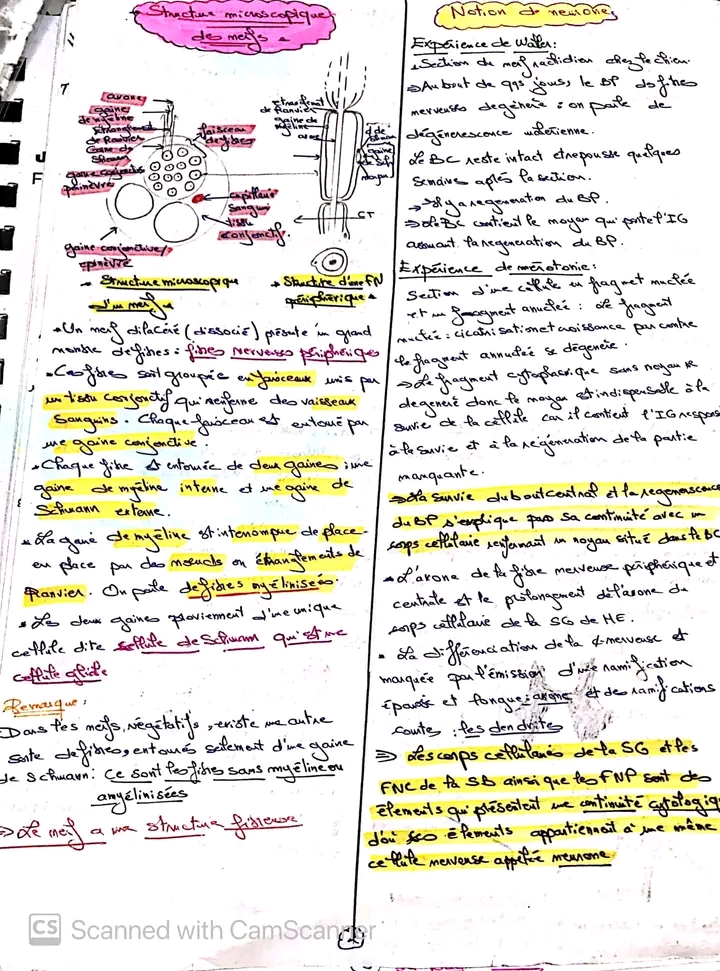 Structure microscopique
des nerfs
axone
gaine
de myéline
Etranglement
de Ranvier
Gaine de
Schwann
gaine conjonctive
périnèvre
faisceau
de fibres
capillaire
sanguin
tissu
conjonctif
gaine conjonctive
épinèvre
Structure microscopique
d'un nerf
Etranglement
de Ranvier
gaine de
myéline
axone
gaine
noyau
CT
Structure d'une FN
périphérique
Un nerf dilacéré (dissocié) présente un grand
nombre de fibres : fibres nerveuses périphériques
Ces fibres sont groupées en faisceaux unis par
un tissu conjonctif qui renferme des vaisseaux
sanguins. Chaque faisceau est entouré par
une gaine conjonctive.
Chaque fibre est entourée de deux gaines : une
gaine de myéline interne et une gaine de
Schwann externe.
La gaine de myéline est interrompue de place
en place par des nœuds ou étranglements de
Ranvier. On parle de fibres myélinisées.
Les deux gaines proviennent d'une unique
cellule dite cellule de Schwann qui est une
cellule gliale
Remarque :
Dans les nerfs végétatifs, existe une autre
sorte de fibres, entourés seulement d'une gaine
de Schwann : ce sont les fibres sans myéline ou
amyélinisées
=> Le nerf a une structure fibreuse
Notion de neurone
Expérience de Waller :
Section du nerf rachidien chez le chien.
=> Au bout de qqs jours, le BP des fibres
nerveuses dégénère : on parle de
dégénérescence wallérienne.
Le BC reste intact et repousse quelques
semaines après la section.
-> Il y a régénération du BP.
=> Le BC contient le noyau qui porte l'IG
assurant la régénération du BP.
Expérience de mérotomie :
Section d'une cellule en fragment nucléé
et un fragment anucléé : Le fragment
nucléé : cicatrisation et croissance par contre
le fragment anucléé se dégénère.
=> Le fragment cytoplasmique sans noyau
dégénéré donc le noyau est indispensable à la
survie de la cellule car il contient l'IG respons
à la survie et à la régénération de la partie
manquante.
=> La survie du bout central et la régénérescence
du BP s'explique par sa continuité avec un
corps cellulaire renfermant un noyau situé dans le BC
L'axone de la fibre nerveuse périphérique et
centrale est le prolongement de l'axone du
corps cellulaire de la SG de ME.
La différenciation de la nerveuse est
marquée par l'émission d'une ramification
épaisse et longue : axone et des ramifications
courtes : les dendrites
=> Les corps cellulaires de la SG et les
FNC de la SB ainsi que les FNP sont des
éléments qui présentent une continuité cytologiq
d'où ses éléments appartiennent à une même
cellule nerveuse appelée neurone
2
CS Scanned with CamScanner